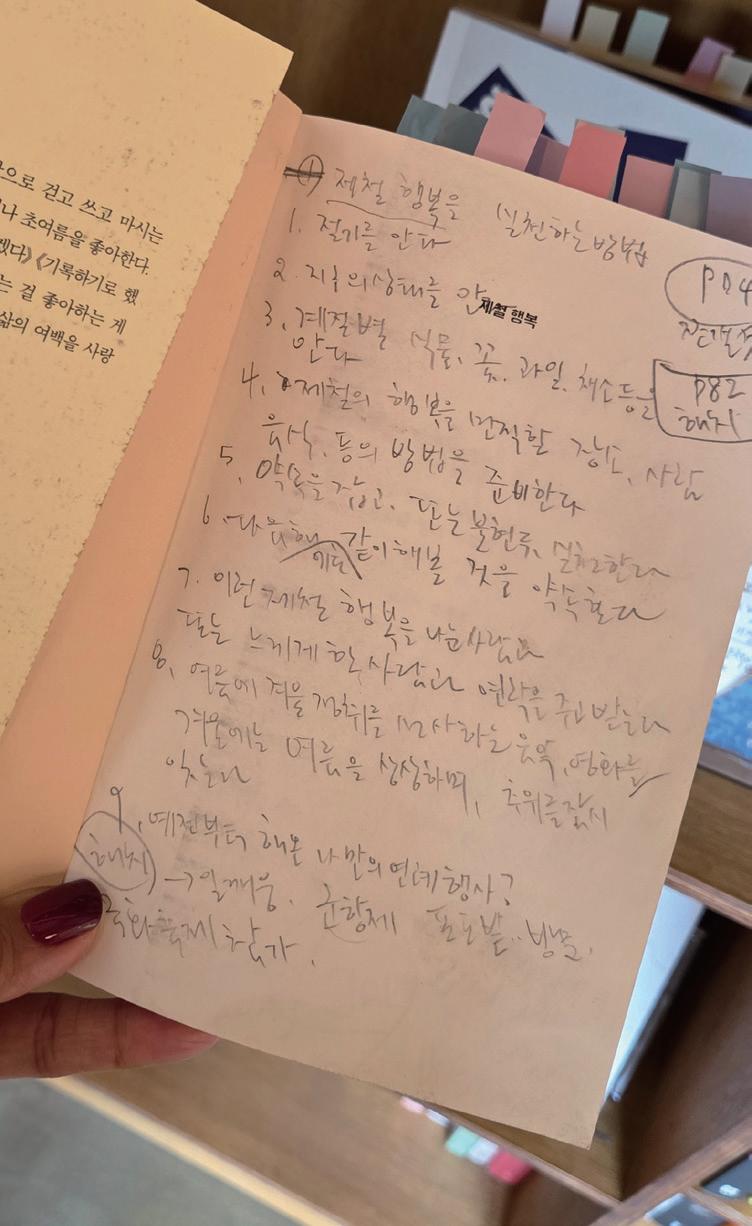 으로 걷고 쓰고 마시는
나 초여름을 좋아한다.
겠다》 《기록하기로 했
는 걸 좋아하는 게
삶의 여백을 사랑
① 제철 행복을 실천하는 방법
1. 절기를 안다
2. 지금의 상태를 안
제철 행복
3. 계절별 식물, 꽃, 과일, 채소등을
안다
4. 제철의 행복을 만끽할 장소, 사람
음식, 등의 방법을 준비한다
5. 약속을 잡고, 또는 불현듯, 실천한다
6. 다음해 같이해볼 것을 약속한다
7. 이런 제철 행복을 나눈사람과
또는 느끼게 한 사람과 연락을 주고 받는다
8. 여름에 겨울 정취를 선사하는 음악, 영화를
겨울에는 여름을 상상하며, 추위를 잠시
잊는다
9. 예전부터 해온 나만의 연례행사?
→ 일깨움. 춘향제 포도밭. 방문.
국화축제 찾가.
P04
P82
해넘이